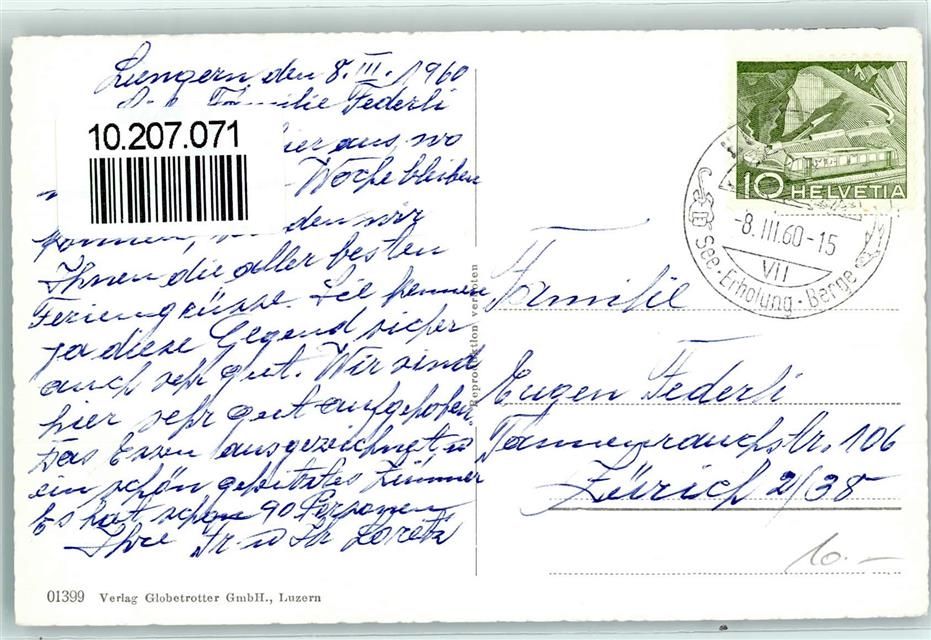 Lungern den 8. III. 1960
Familie Federli
10.207.071
hier aus, wo
Woche bleiben
können, den wir
Ihnen die aller besten
Feriengrüsse. Sie kennen
ja diese Gegend sicher
auch sehr gut. Wir sind
hier sehr gut aufgehoben,
das Essen ausgezeichnet u
ein schön geheiztes Zimmer
Es hat schon 90 Personen
Ihre Fr. u Hr Loretz
01399 Verlag Globetrotter GmbH., Luzern
„Reproduktion verboten"
10 HELVETIA
-8.III.60-15
VII
See · Erholung · Berge
Familie
Eugen Federli
Tannenrauchstr. 106
Zürich 2/38
10.-